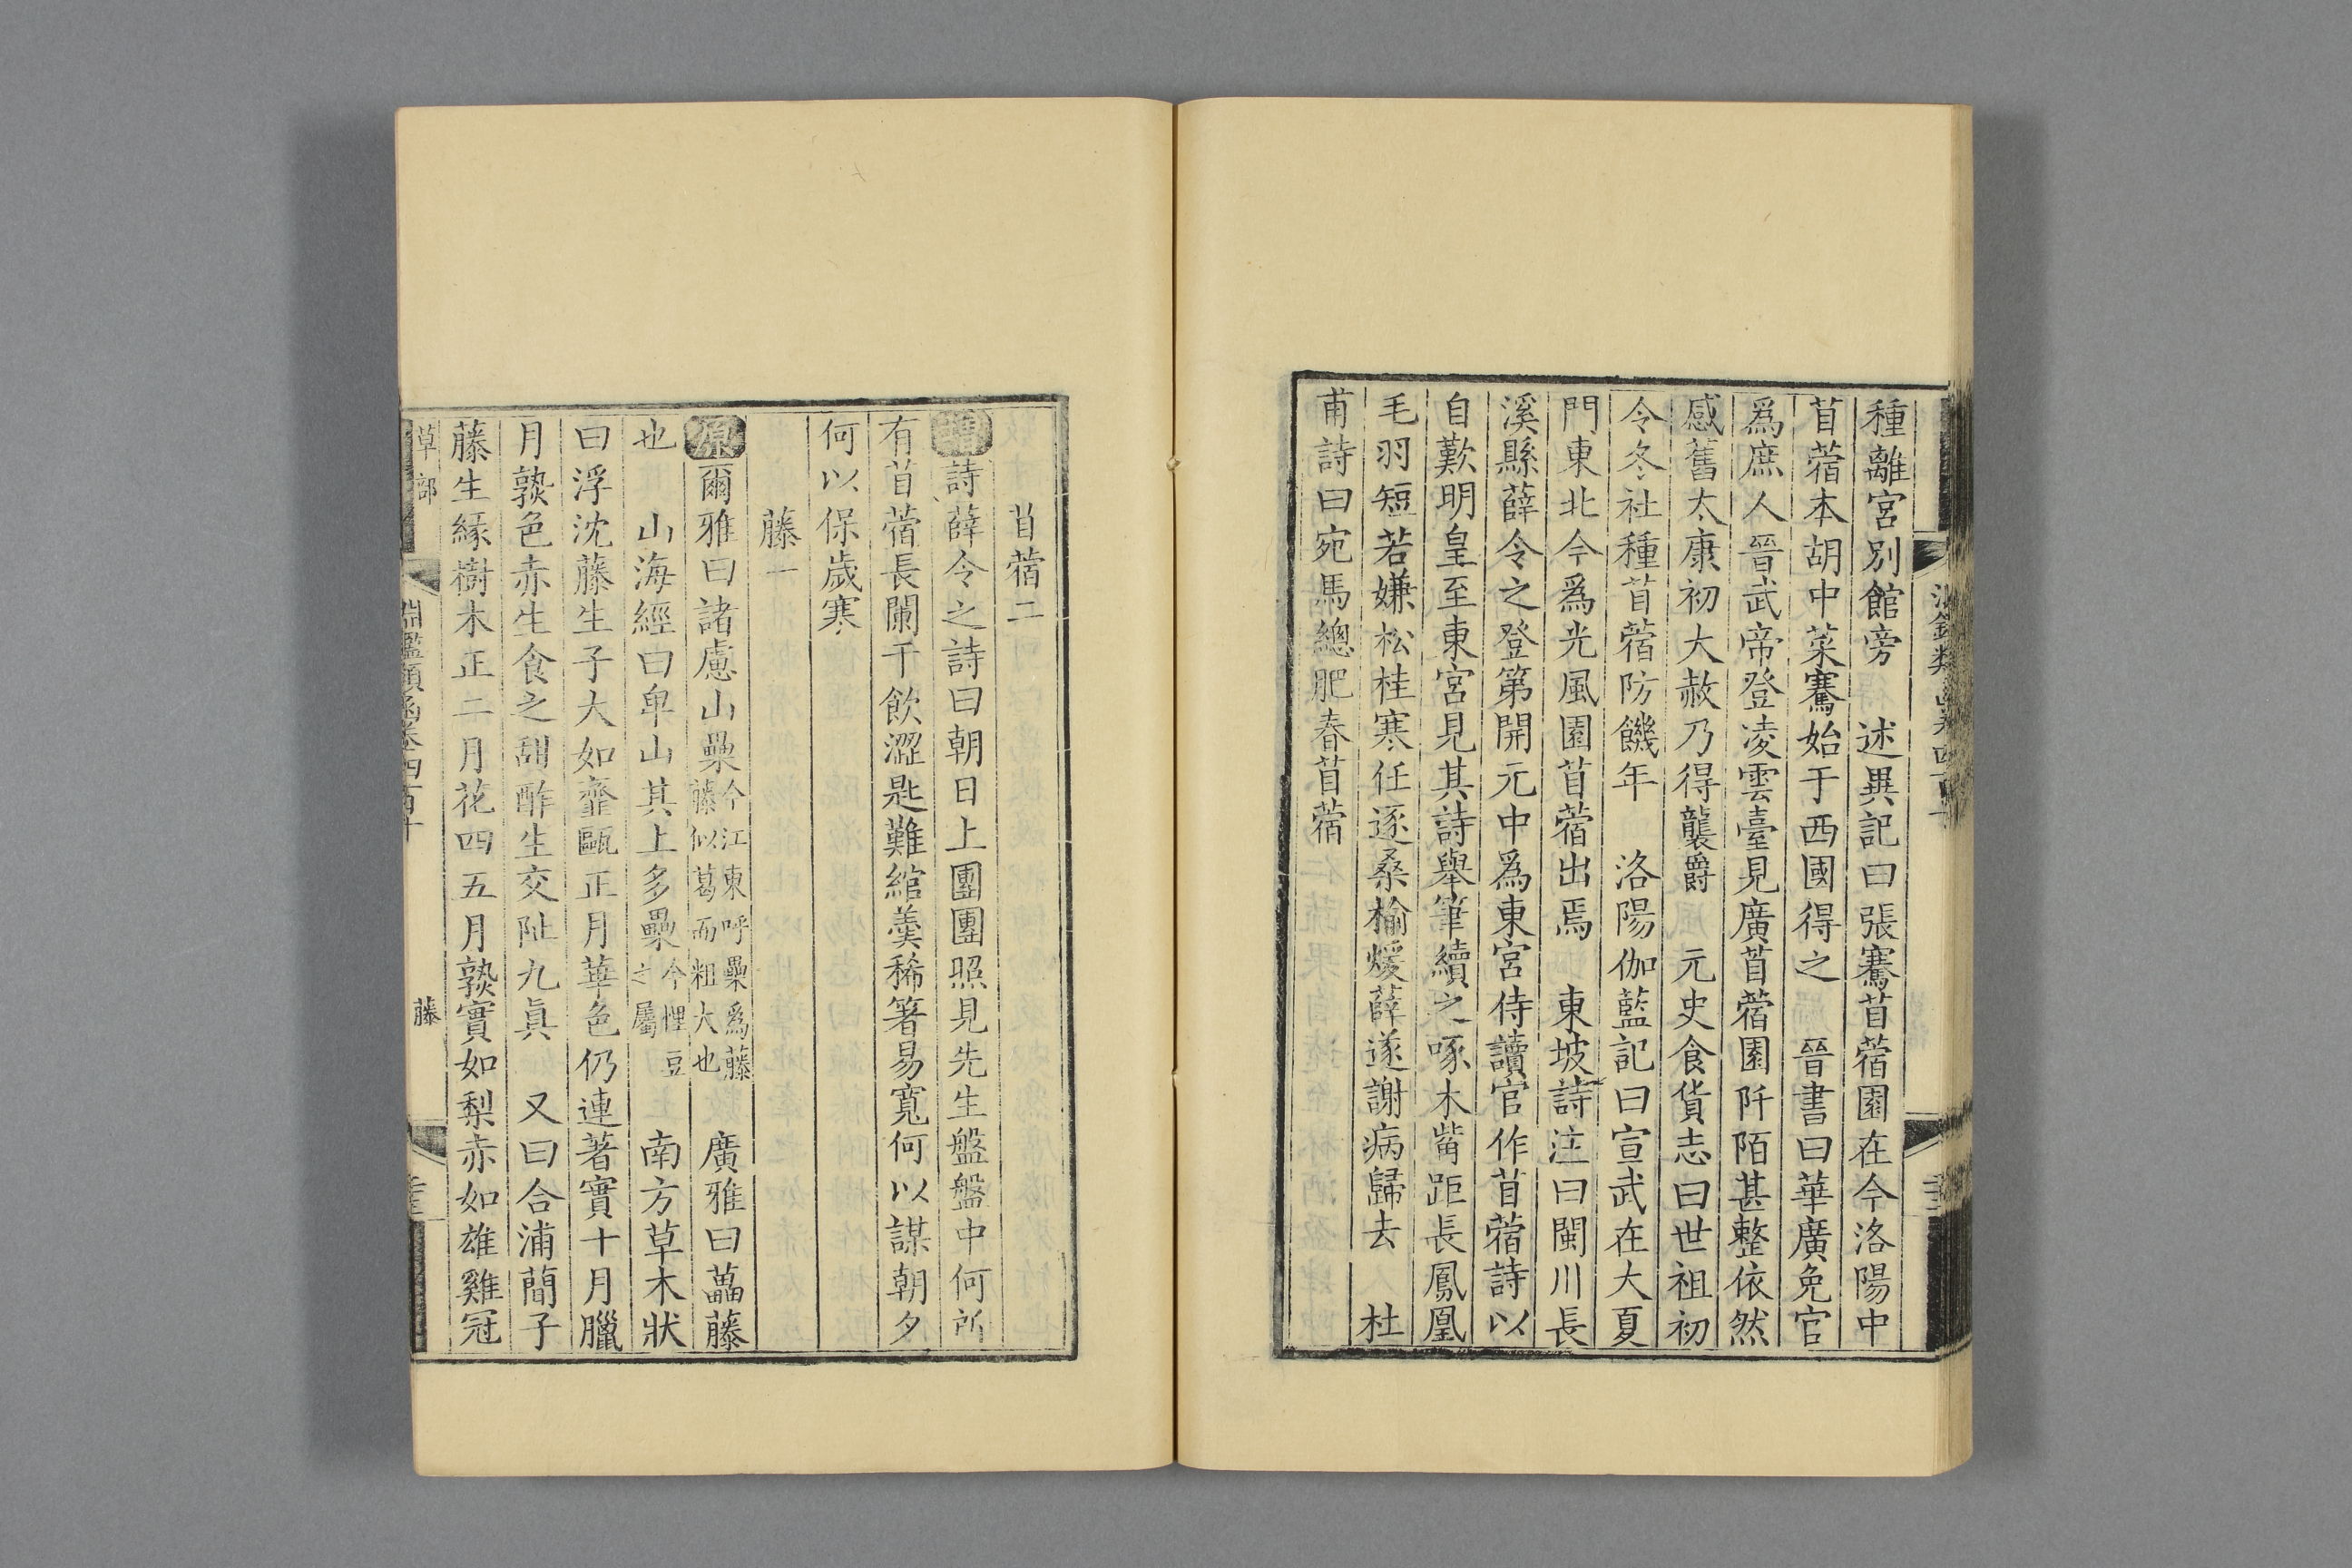 種離宮別館旁　述異記曰張騫苜蓿園在今洛陽中
苜蓿本胡中菜騫始于西國得之　晉書曰華廣免官
爲庶人晉武帝登凌雲臺見廣苜蓿園阡陌甚整依然
感舊太康初大赦乃得襲爵　元史食貨志曰世祖初
令冬社種苜蓿防饑年　洛陽伽藍記曰宣武在大夏
門東北今爲光風園苜蓿出焉　東坡詩注曰閩川長
溪縣薛令之登第開元中爲東宮侍讀官作苜蓿詩以
自歎明皇至東宮見其詩舉筆續之啄木觜距長鳳凰
毛羽短若嫌松桂寒任逐桑榆煖薛遂謝病歸去　杜
甫詩曰宛馬總肥春苜蓿
苜蓿二
增詩薛令之詩曰朝日上團團照見先生盤盤中何所
有苜蓿長闌干飲澀匙難綰羹稀箸易寬何以謀朝夕
何以保歲寒
藤一
原爾雅曰諸慮山櫐今江東呼櫐爲藤藤似葛而粗大也　廣雅曰藟藤
也　山海經曰卑山其上多櫐今㹢豆之屬　南方草木狀
曰浮沈藤生子大如虀甌正月華色仍連著實十月臘
月熟色赤生食之甜酢生交阯九眞　又曰合浦蕑子
藤生緣樹木正二月花四五月熟實如梨赤如雄雞冠
草部
淵鑑類函卷四百十
藤